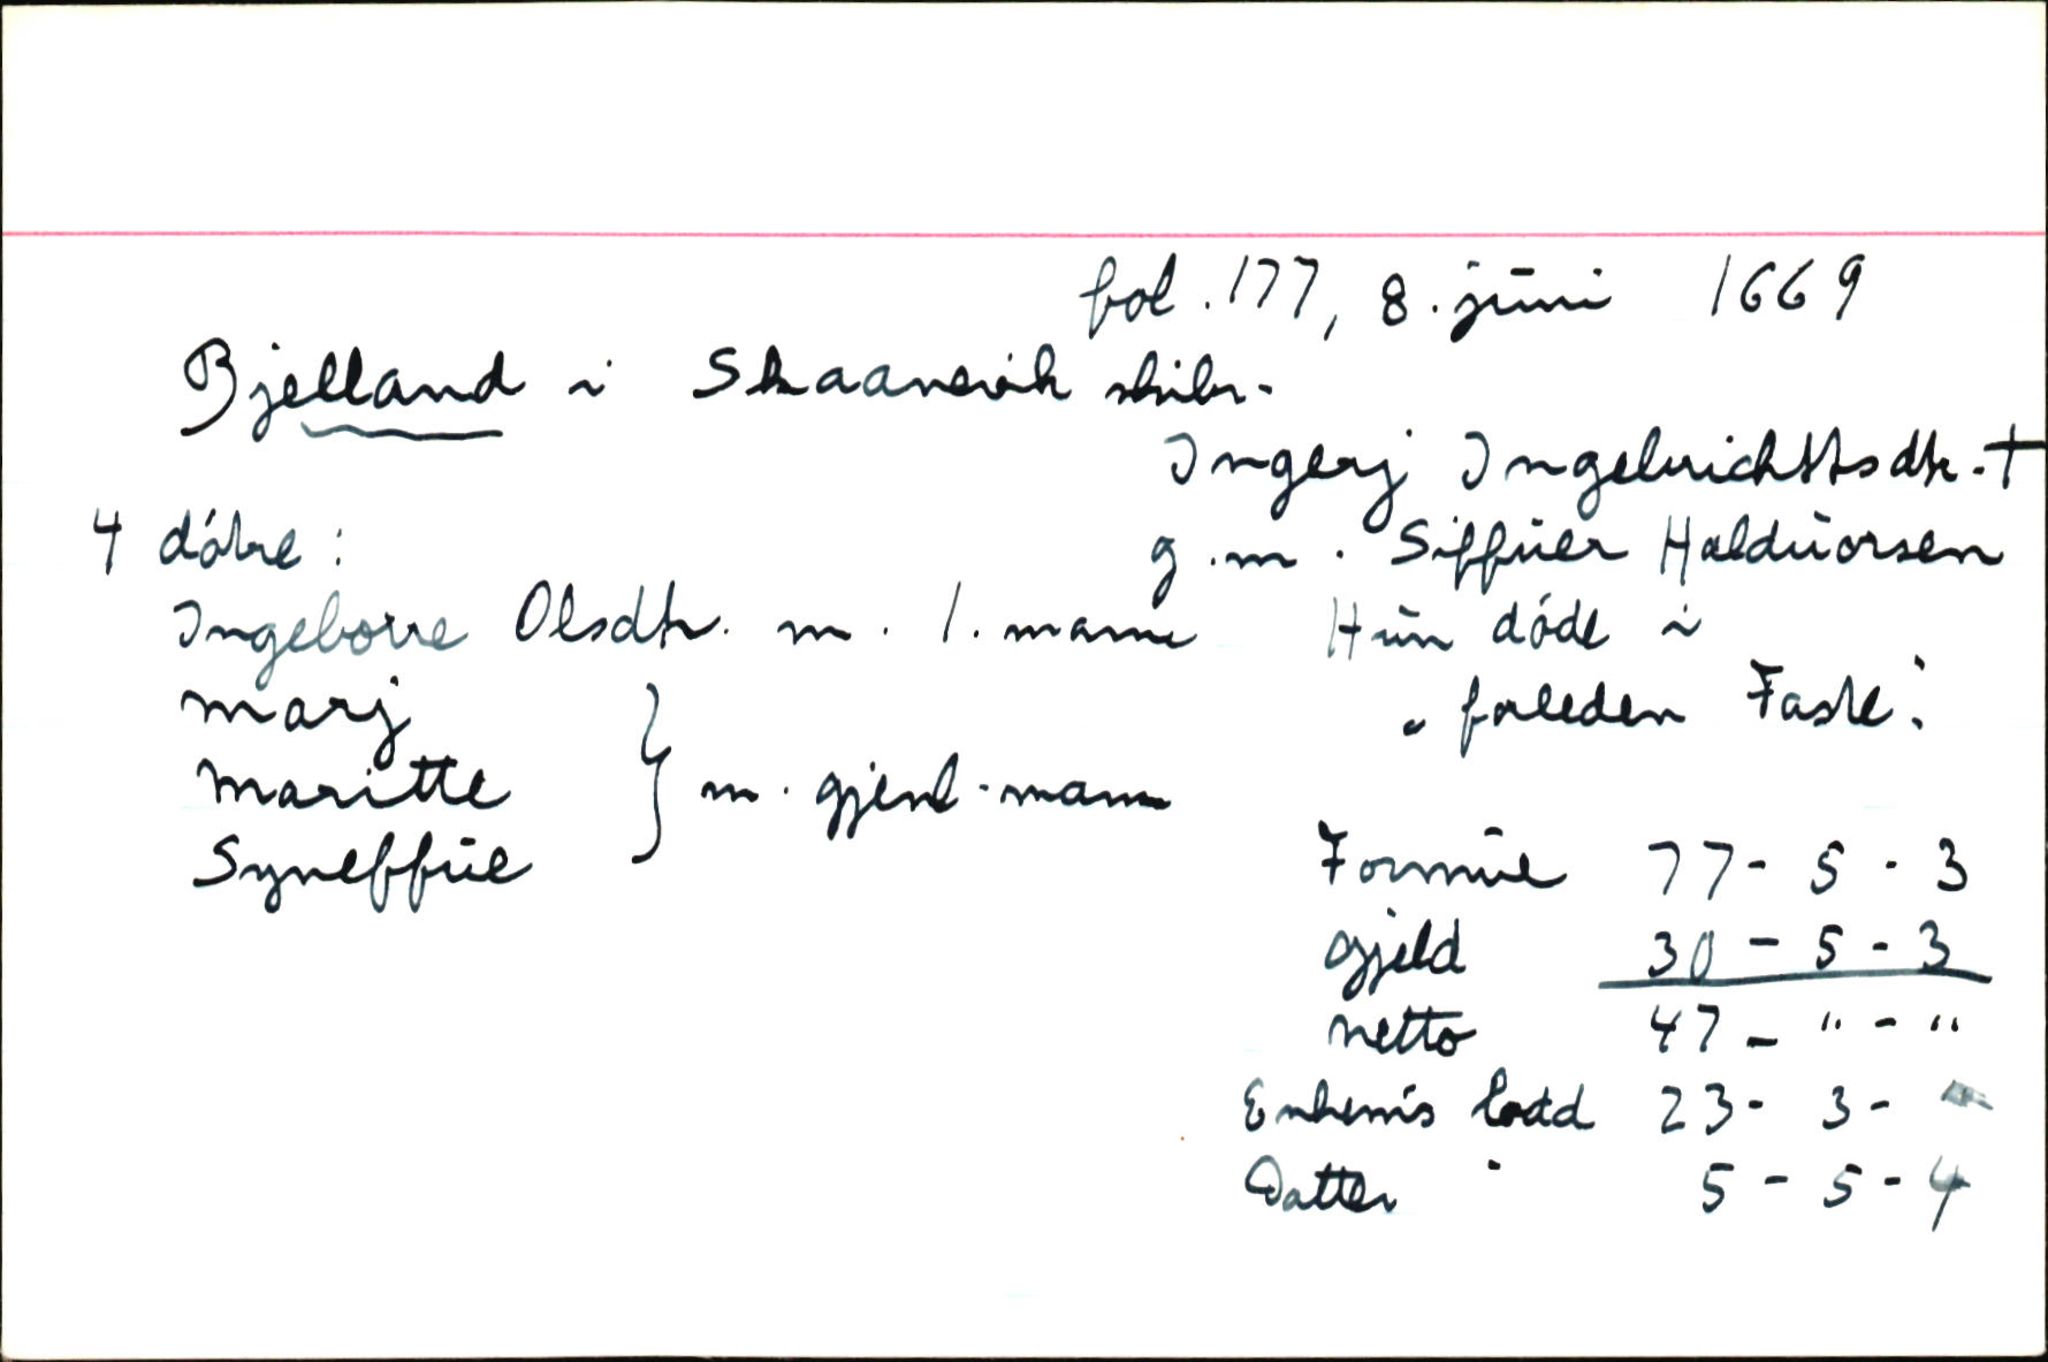 fol. 177, 8. juni 1669
Bjelland i Skaanevik skibr.
Ingerj Ingebrichttsdtr. †
4 døtre:
g. m. Siffuer Halduorsen
Ingeborre Olsdtr. m. 1. mann
Hun døde i
Marj
„forleden Faste".
Maritte
} m. gjenl. mann
Syneffue
Formue 77 - 5 - 3
Gjeld 30 - 5 - 3
Netto 47 - " - "
Enkem's lodd 23 - 3 - "
Datter " 5 - 5 - 4